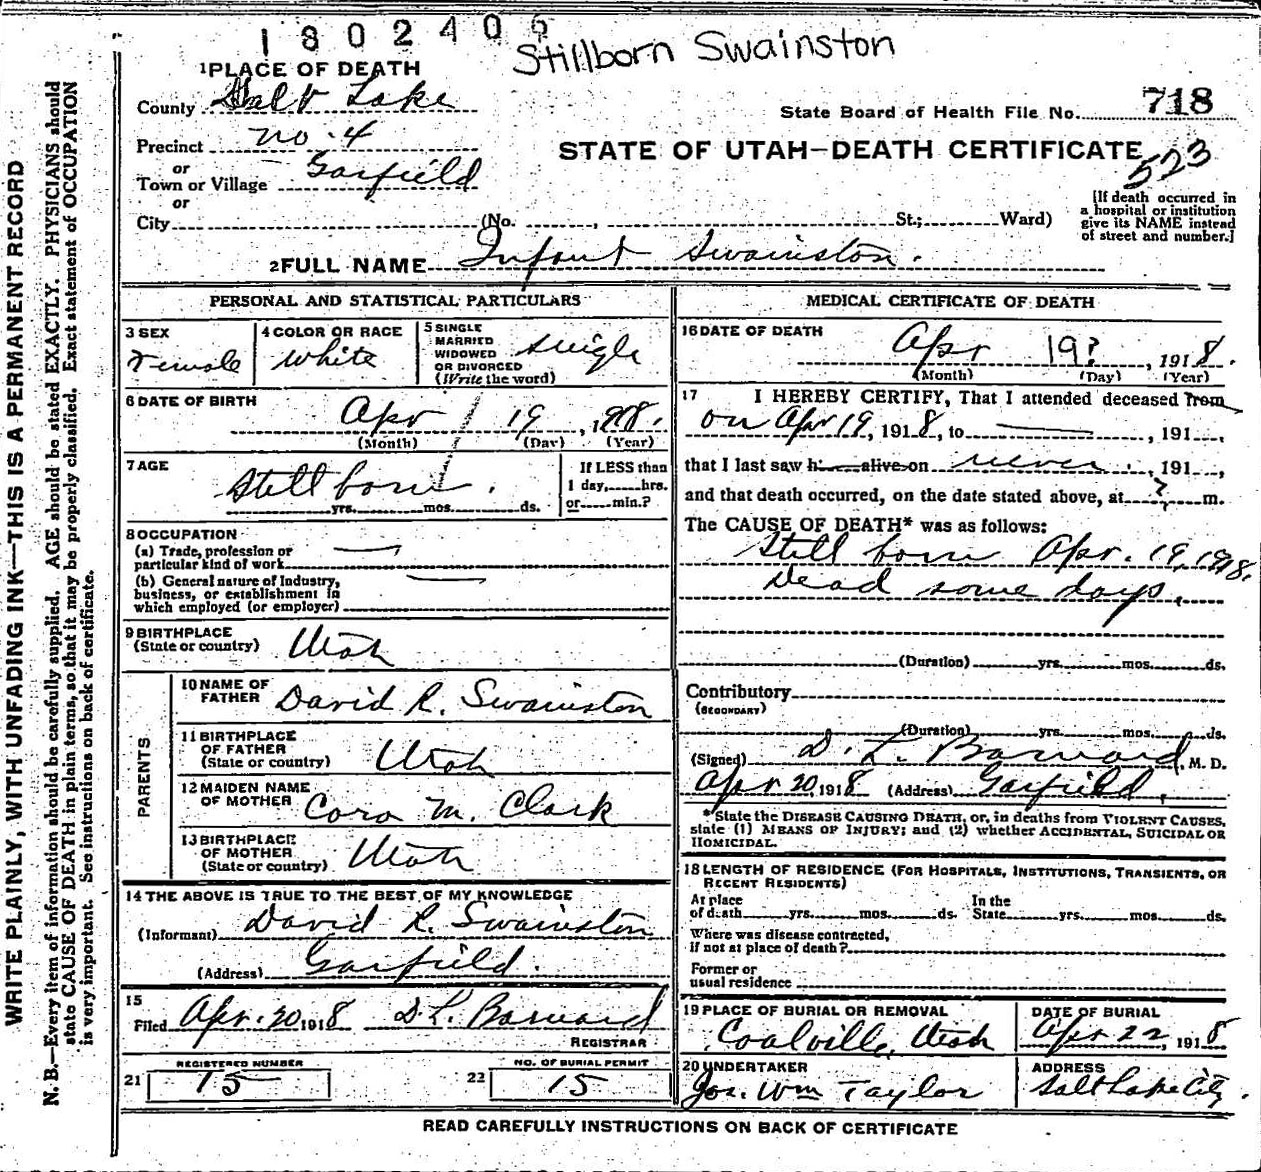 1802406
Stillborn Swainston
1 PLACE OF DEATH
County Salt Lake
State Board of Health File No. 718
Precinct no. 4
STATE OF UTAH—DEATH CERTIFICATE
523
or
Town or Village Garfield
or
City (No. , St.; Ward)
[If death occurred in
a hospital or institution
give its NAME instead
of street and number.]
2 FULL NAME Infant Swainston.
PERSONAL AND STATISTICAL PARTICULARS
3 SEX
Female
4 COLOR OR RACE
White
5 SINGLE
MARRIED
WIDOWED
OR DIVORCED
(Write the word)
single
6 DATE OF BIRTH
Apr 19, 1918.
(Month) (Day) (Year)
7 AGE
Still born.
yrs. mos. ds.
If LESS than
1 day, hrs.
or min.?
8 OCCUPATION
(a) Trade, profession or
particular kind of work
(b) General nature of Industry,
business, or establishment in
which employed (or employer)
9 BIRTHPLACE
(State or country) Utah
PARENTS
10 NAME OF
FATHER David R. Swainston
11 BIRTHPLACE
OF FATHER
(State or country) Utah
12 MAIDEN NAME
OF MOTHER Cora M. Clark
13 BIRTHPLACE
OF MOTHER
(State or country) Utah
14 THE ABOVE IS TRUE TO THE BEST OF MY KNOWLEDGE
(Informant) David R. Swainston
(Address) Garfield.
15
Filed Apr. 20 1918 D L. Barnard
REGISTRAR
REGISTERED NUMBER
21 15
NO. OF BURIAL PERMIT
22 15
MEDICAL CERTIFICATE OF DEATH
16 DATE OF DEATH
Apr 19?, 1918.
(Month) (Day) (Year)
17 I HEREBY CERTIFY, That I attended deceased from
on Apr 19, 1918, to , 191 ,
that I last saw h alive on never., 191 ,
and that death occurred, on the date stated above, at ? m.
The CAUSE OF DEATH* was as follows:
Still born Apr. 19, 1918.
Dead some days.
(Duration) yrs. mos. ds.
Contributory
(SECONDARY)
(Duration) yrs. mos. ds.
(Signed) D. L. Barnard, M. D.
Apr 20, 1918 (Address) Garfield,
*State the DISEASE CAUSING DEATH, or, in deaths from VIOLENT CAUSES,
state (1) MEANS OF INJURY; and (2) whether ACCIDENTAL, SUICIDAL OR
HOMICIDAL.
18 LENGTH OF RESIDENCE (FOR HOSPITALS, INSTITUTIONS, TRANSIENTS, OR
RECENT RESIDENTS)
At place
of death yrs. mos. ds.
In the
State yrs. mos. ds.
Where was disease contracted,
if not at place of death?
Former or
usual residence
19 PLACE OF BURIAL OR REMOVAL
Coalville, Utah
DATE OF BURIAL
Apr 22, 1918
20 UNDERTAKER
Jos. Wm Taylor
ADDRESS
Salt Lake City.
READ CAREFULLY INSTRUCTIONS ON BACK OF CERTIFICATE
WRITE PLAINLY, WITH UNFADING INK—THIS IS A PERMANENT RECORD
N. B.—Every item of information should be carefully supplied. AGE should be stated EXACTLY. PHYSICIANS should
state CAUSE OF DEATH in plain terms, so that it may be properly classified. Exact statement of OCCUPATION
is very important. See instructions on back of certificate.